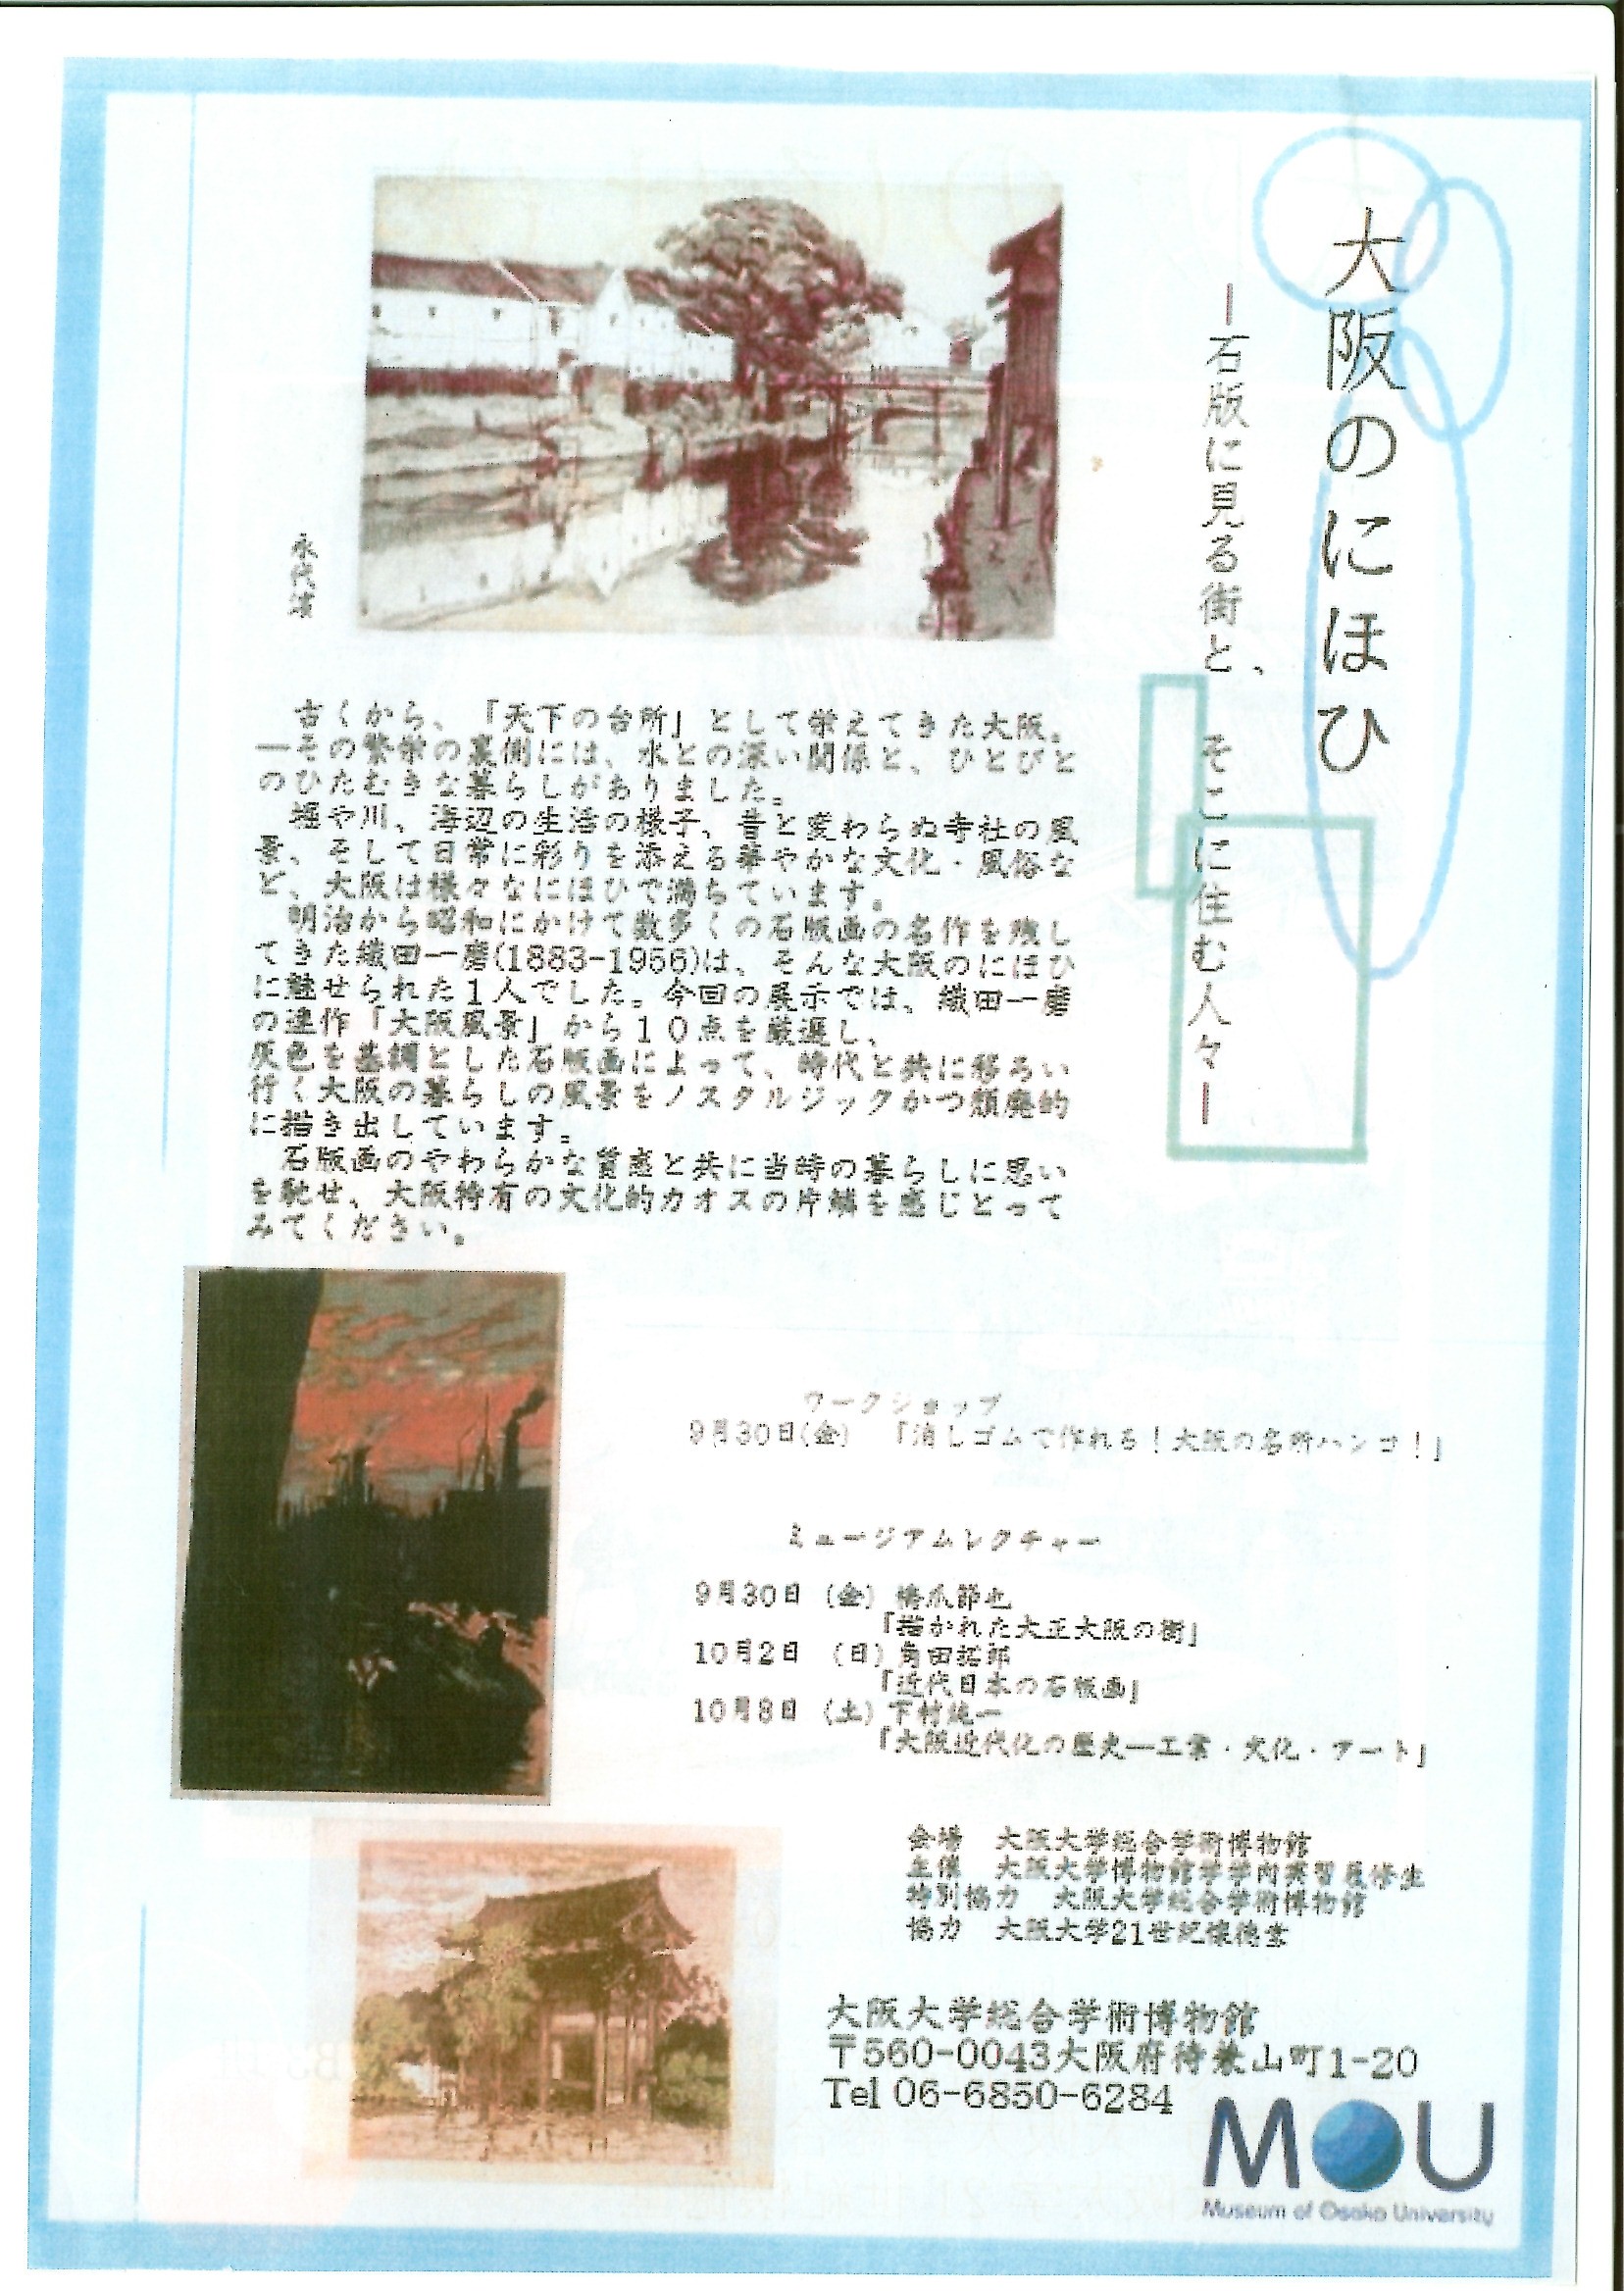 大阪のにほひ
―石版に見る街と、そこに住む人々―
永代濱
古くから、「天下の台所」として栄えてきた大阪。
―その繁栄の裏側には、水との深い関係と、ひとびと
のひたむきな暮らしがありました。
堀や川、海辺の生活の様子、昔と変わらぬ寺社の風
景、そして日常に彩りを添える華やかな文化・風俗な
ど、大阪は様々なにほひで満ちています。
明治から昭和にかけて数多くの石版画の名作を残し
てきた織田一磨(1883-1956)は、そんな大阪のにほひ
に魅せられた1人でした。今回の展示では、織田一磨
の連作「大阪風景」から10点を厳選し、
灰色を基調とした石版画によって、時代と共に移ろい
行く大阪の暮らしの風景をノスタルジックかつ頽廃的
に描き出しています。
石版画のやわらかな質感と共に当時の暮らしに思い
を馳せ、大阪特有の文化的カオスの片鱗を感じとって
みてください。
ワークショップ
9月30日(金) 「消しゴムで作れる!大阪の名所ハンコ!」
ミュージアムレクチャー
9月30日 (金) 橋爪節也
「描かれた大正大阪の街」
10月2日 (日) 角田拓郎
「近代日本の石版画」
10月8日 (土) 下村純一
「大阪近代化の歴史―工業・文化・アート」
会場 大阪大学総合学術博物館
主催 大阪大学博物館学学内実習履修生
特別協力 大阪大学総合学術博物館
協力 大阪大学21世紀懐徳堂
大阪大学総合学術博物館
〒560-0043大阪府待兼山町1-20
Tel 06-6850-6284
MOU
Museum of Osaka University